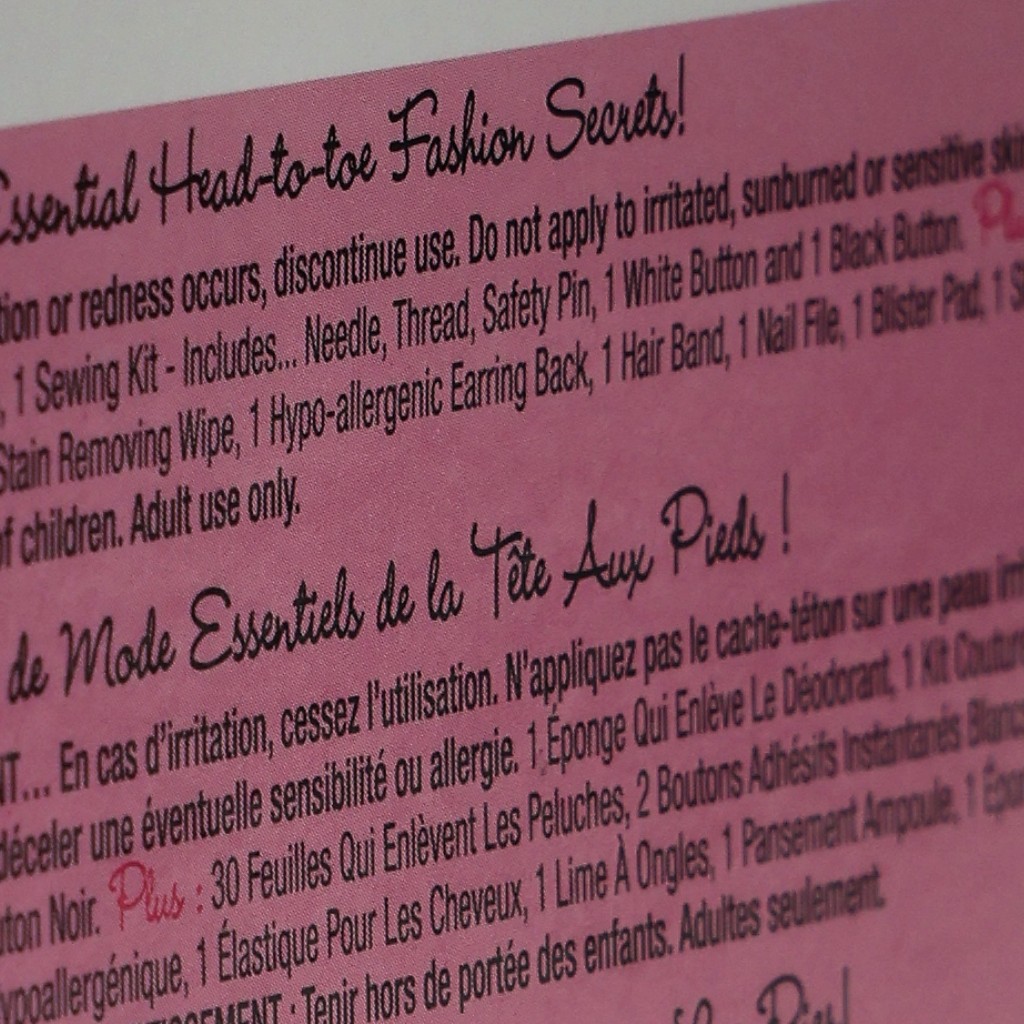 Essential Head-to-toe Fashion Secrets!
tion or redness occurs, discontinue use. Do not apply to irritated, sunburned or sensitive skin
, 1 Sewing Kit - Includes... Needle, Thread, Safety Pin, 1 White Button and 1 Black Button. Plu
Stain Removing Wipe, 1 Hypo-allergenic Earring Back, 1 Hair Band, 1 Nail File, 1 Blister Pad, 1 S
of children. Adult use only.
de Mode Essentiels de la Tête Aux Pieds !
NT... En cas d'irritation, cessez l'utilisation. N'appliquez pas le cache-téton sur une peau irri
déceler une éventuelle sensibilité ou allergie. 1 Éponge Qui Enlève Le Déodorant, 1 Kit Couture
uton Noir. Plus : 30 Feuilles Qui Enlèvent Les Peluches, 2 Boutons Adhésifs Instantanés Blancs
ypoallergénique, 1 Élastique Pour Les Cheveux, 1 Lime À Ongles, 1 Pansement Ampoule, 1 Épon
TISSEMENT : Tenir hors de portée des enfants. Adultes seulement.